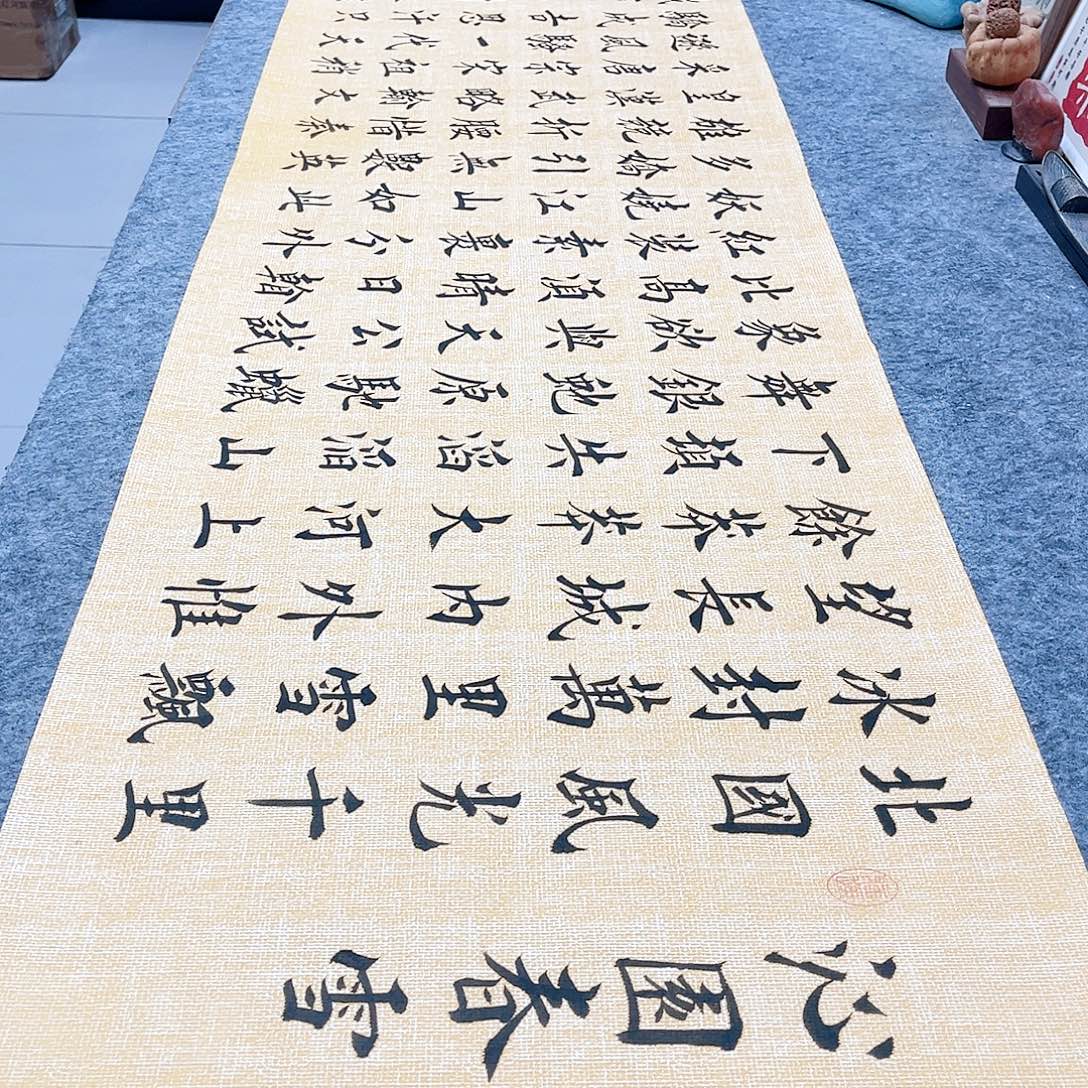 沁園春雪
北國風光千里
冰封萬里雪飄
望長城內外惟
餘莽莽大河上
下頓失滔滔山
舞銀蛇原馳蠟
象欲與天公試
比高須晴日看
紅裝素裹分外
妖嬈江山如此
多嬌引無數英
雄競折腰惜秦
皇漢武略輸文
采唐宗宋祖稍
遜風騷一代天
驕成吉思汗只